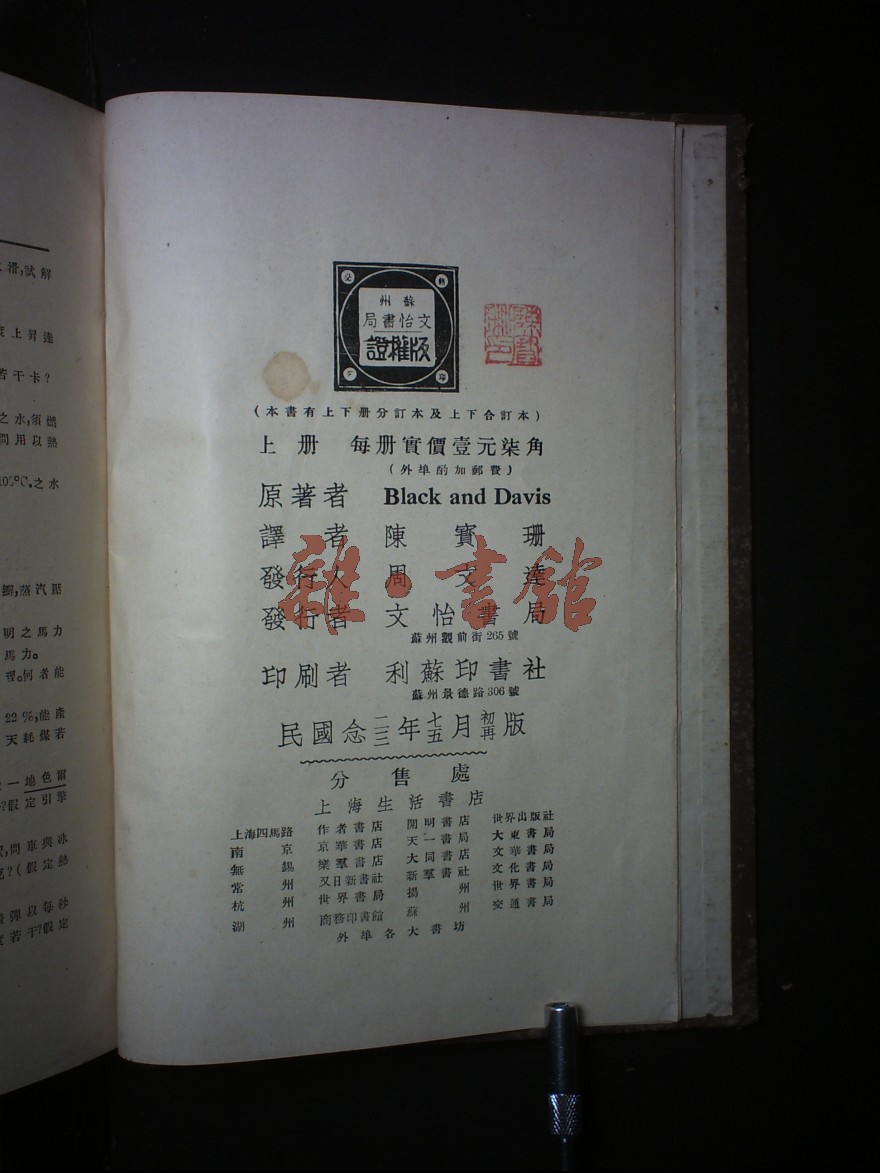 滑,試解
度上昇達
若干卡?
之水,須燃
問用以熱
105°C.之水
鄉,蒸汽壓
明之馬力
馬力。
理。何者能
22%,能產
天耗煤若
一地色爾
?假定引擎
問車與冰
克?(假定熱
彈以每秒
度若干?假定
蘇州
文怡書局
版權證
(本書有上下册分訂本及上下合訂本)
上册 每册實價壹元柒角
(外埠酌加郵費)
原著者 Black and Davis
譯者 陳寶珊
發行人 周文達
發行者 文怡書局
蘇州觀前街265號
印刷者 利蘇印書社
蘇州景德路306號
民國念二三年七五月初再版
雜·書館
分售處
上海生活書店
上海四馬路 作者書店 開明書店 世界出版社
南京 京華書店 天一書局 大東書局
無錫 樂羣書店 大同書店 文華書局
常州 又日新書社 新羣書社 文化書局
杭州 世界書局 揚州 世界書局
湖州 商務印書館 蘇州 交通書局
外埠各大書坊